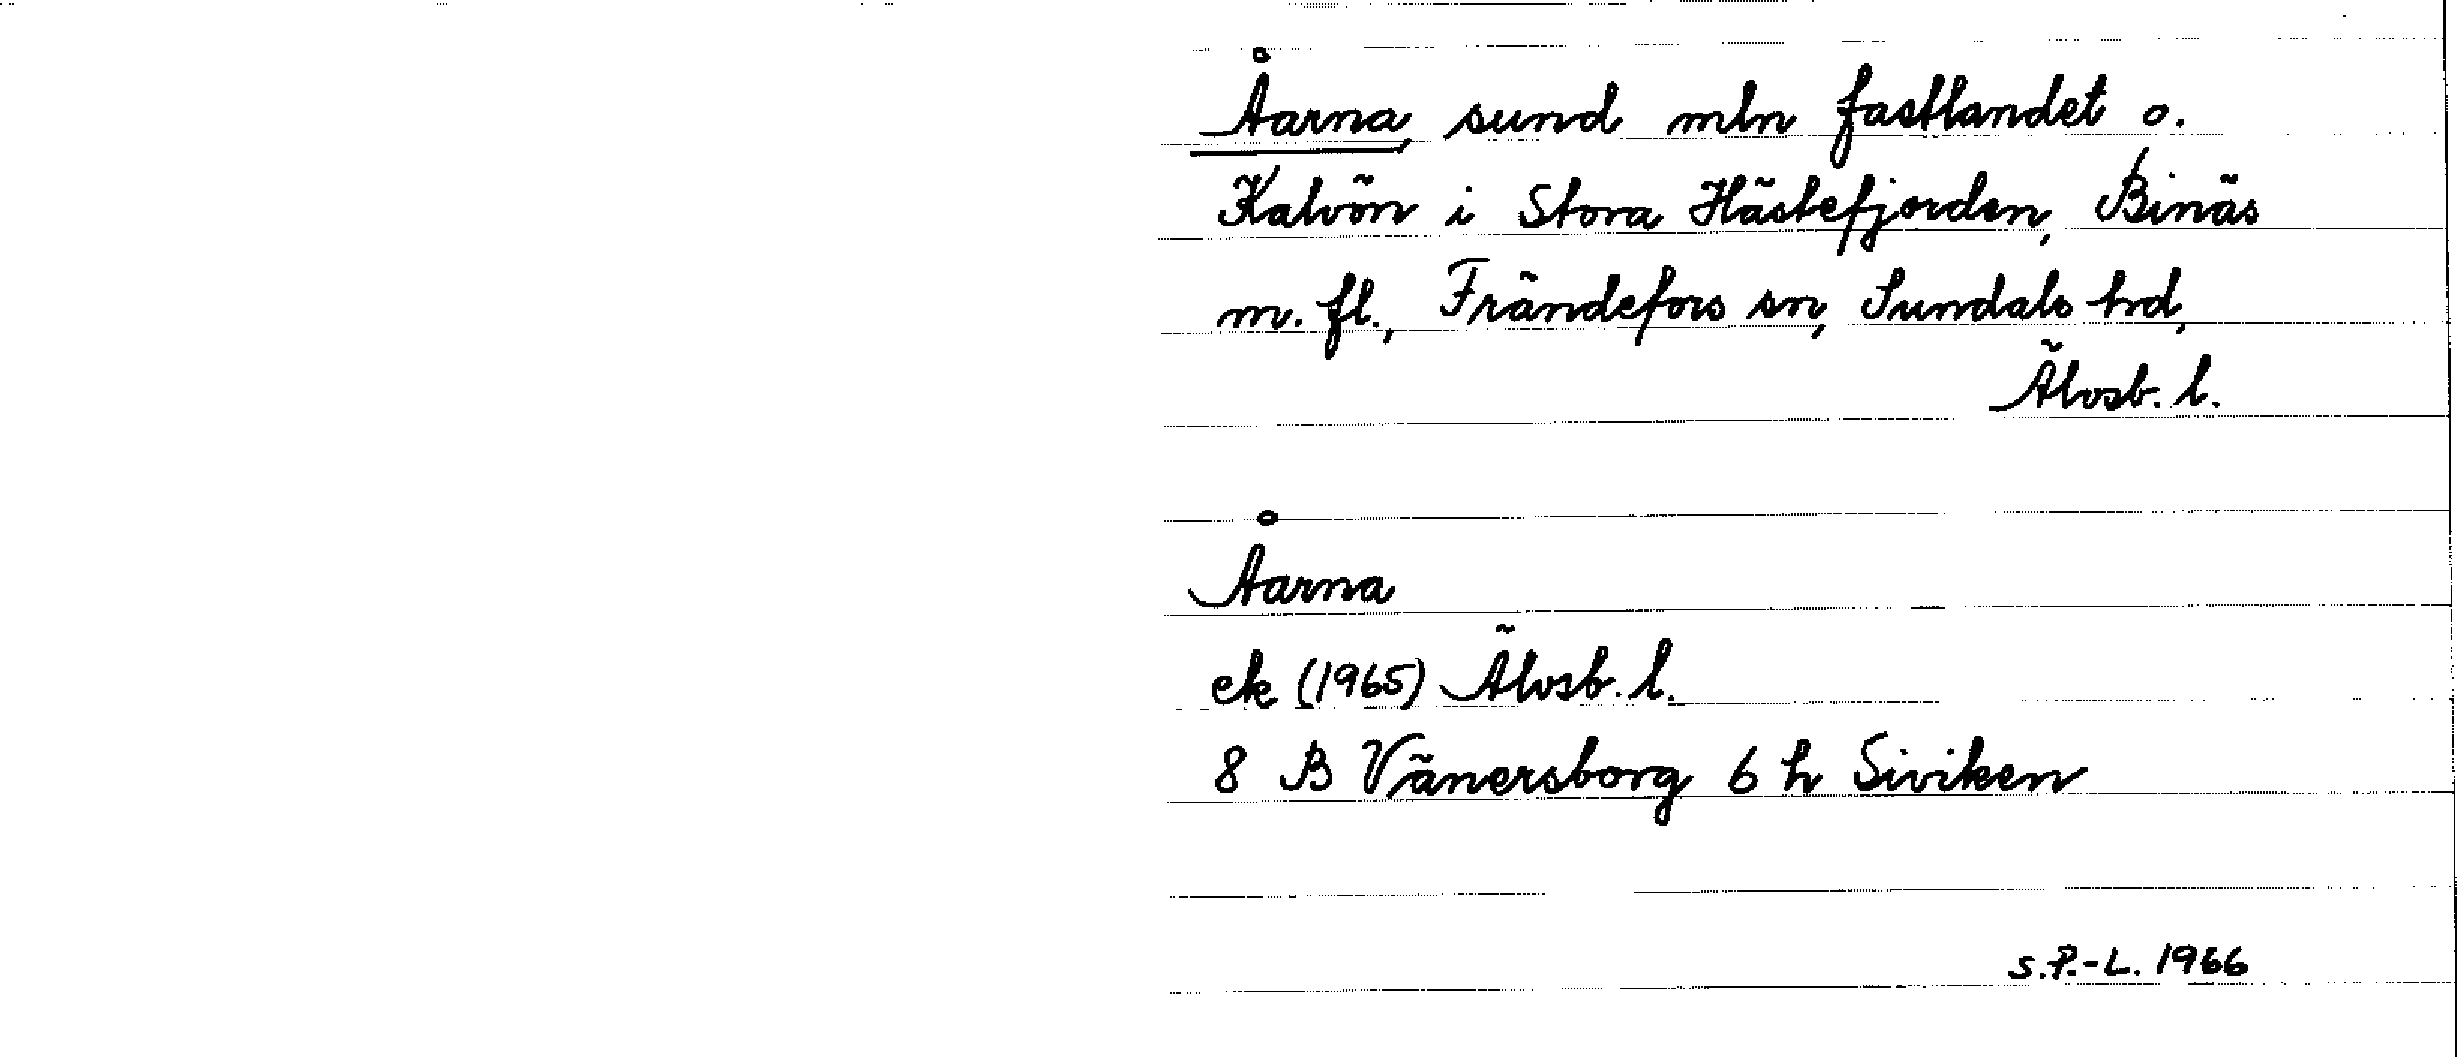 Åarna, sund mln fastlandet o.
Kalvön i Stora Hästefjorden, Binäs
m. fl., Frändefors sn, Sundals hd,
Älvsb. l.
Åarna
ek (1965) Älvsb. l.
8 B Vänersborg 6 h Siviken
S.P.-L. 1966